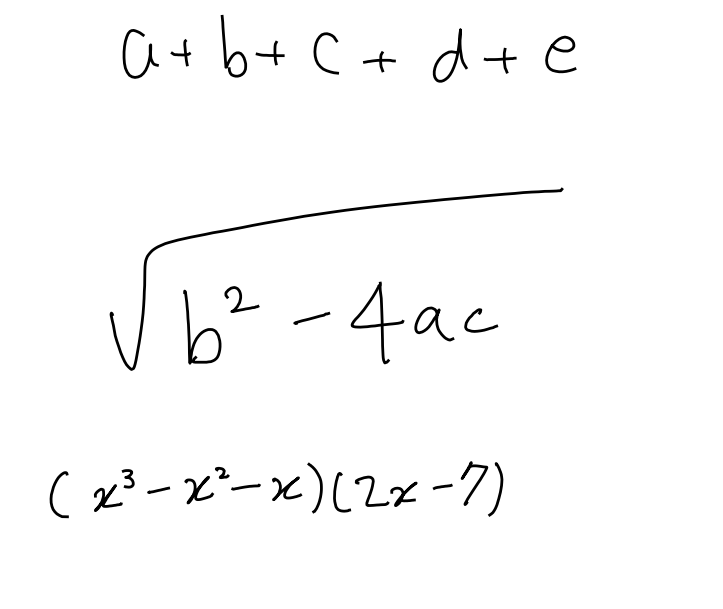 a + b + c + d + e
√(b² - 4ac)
(x³ - x² - x)(2x - 7)